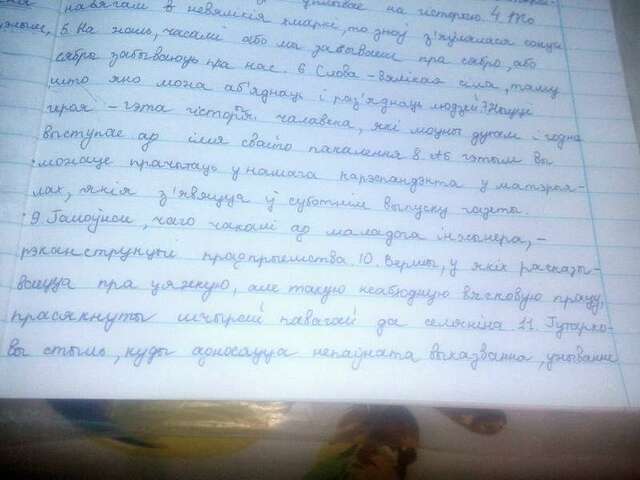 навягам в невялікія хмаркі, то зноў з'яўлялася сонца
5. На жаль, часам або мы забываем пра сябро, або
сябро забываюць пра нас. 6 Слова - вялікая сіла, таму
што яно можа аб'яднаць і раз'яднаць людзей 7
героя - гэта гісторыя чалавека, які моцны духам і годна
выступае ад імя свайго пакалення 8. Аб гэтым вы
можаце прачытаць у нашага карэспандэнта у матэрыя-
лах, якія з'явяцца ў суботнім выпуску газеты.
9 Галоўнае, чаго чакалі ад маладога інжынера, -
рэканструкцыі прадпрыемства. 10. Вершы, у якіх расказы-
ваецца пра цяжкую, але такую неабходную вясковую працу,
прасякнуты шчырай павагай да селяніна 11. Гутарко-
вы стыль, куды адносяцца непаўната выказвання, ужыванне